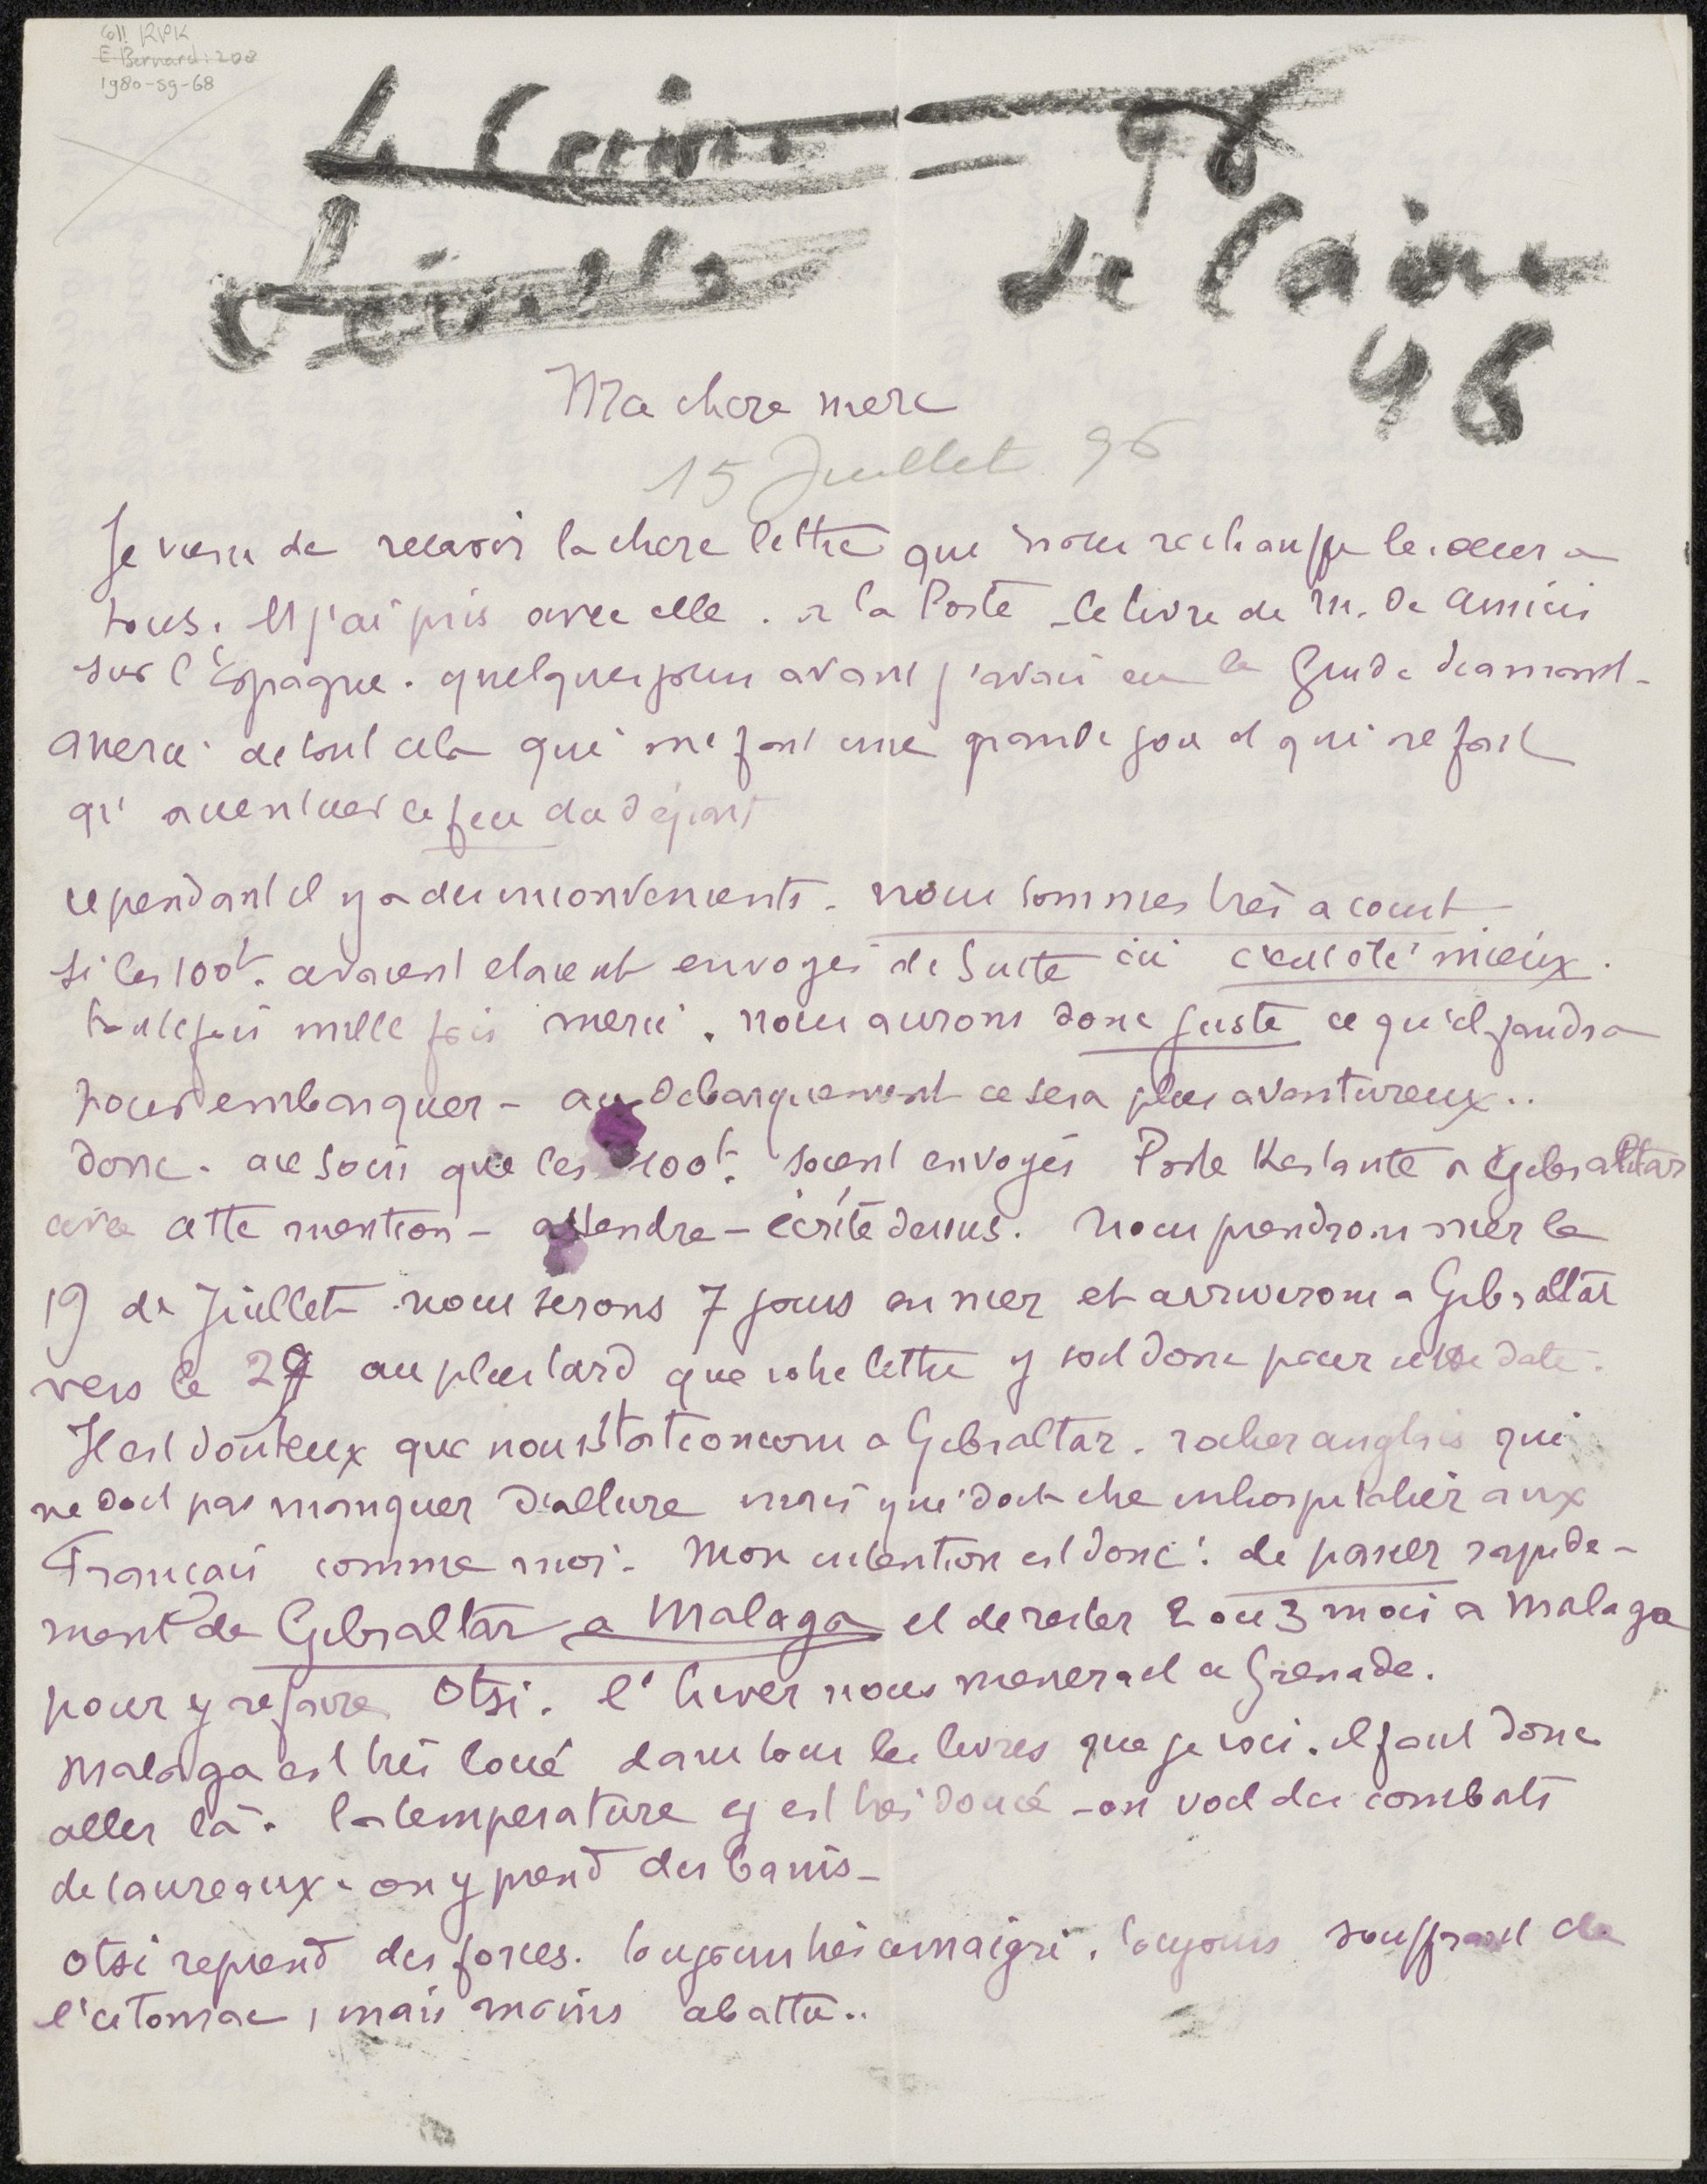 Coll RPK
E. Bernard: 208
1980-sg-68
Le Caire - 96
Séville
Le Caire
96
Ma chere mere
15 Juillet 96
Je viens de recevoir la chere lettre qui nous rechauffe le coeur a
tous. Et j'ai pris avec elle. a la Poste - le livre de M. De Amicis
sur l'Espagne. quelques jours avant j'avais eu le Guide diamant -
merci de tout cela qui me fait une grande joie et qui ne fait
qu'accentuer le feu du départ
cependant il y a des inconvenients. nous sommes très a court
si les 100f. avaient etaient envoyés de Suite ici c'eut été mieux.
toutefois mille fois merci. nous aurons donc juste ce qu'il faudra
pour embarquer - au debarquement ce sera plus aventureux..
donc. aie soin que les 100f. soient envoyés Poste Restante a Gibraltar
avec cette mention - attendre - écrite dessus. Nous prendrons mer le
19 de Juillet nous serons 7 jours en mer et arriverons a Gibraltar
vers le 27 au plus tard que votre lettre y soit donc pour cette date.
Il est douteux que nous stationions a Gibraltar. rocher anglais qui
ne doit pas manquer d'allure mais qui doit etre inhospitalier aux
Français comme moi. Mon intention est donc: de passer rapide-
ment de Gibraltar a Malaga et de rester 2 ou 3 mois a Malaga
pour y refaire Otsi. l'hiver nous menerait a Grenade.
Malaga est très loué dans tous les livres que je vois. il faut donc
aller là. la temperature y est très douce - on voit des combats
de taureaux. on y prend des bains -
Otsi reprend des forces. toujours très amaigri. toujours souffrant de
l'estomac, mais moins abattu..